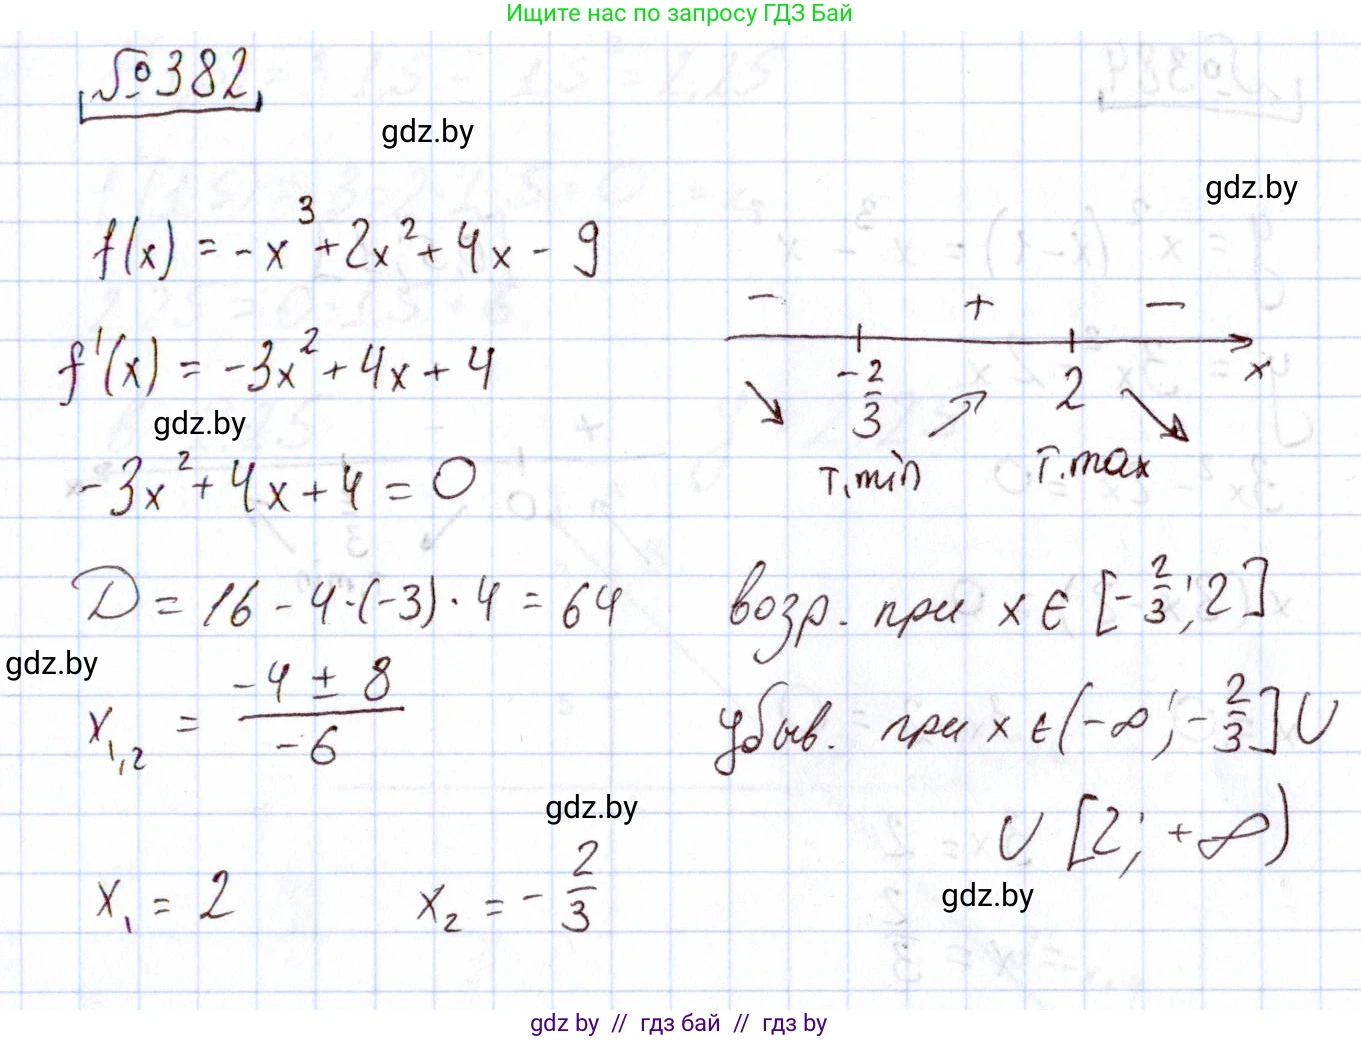 Ищите нас по запросу ГДЗ Бай
№382
gdz.by
gdz.by
f(x) = -x³+2x²+4x-9
f'(x) = -3x²+4x+4
gdz.by
-3x²+4x+4=0
D = 16-4·(-3)·4 = 64
gdz.by
x₁,₂ = (-4 ± 8)/(-6)
gdz.by
x₁ = 2 x₂ = -2/3
- + -
-2/3 2 x
т.min т.max
возр. при x ∈ [-2/3; 2]
убыв. при x ∈ (-∞; -2/3] ∪
∪ [2; +∞)
gdz.by
gdz by // гдз бай // гдз by